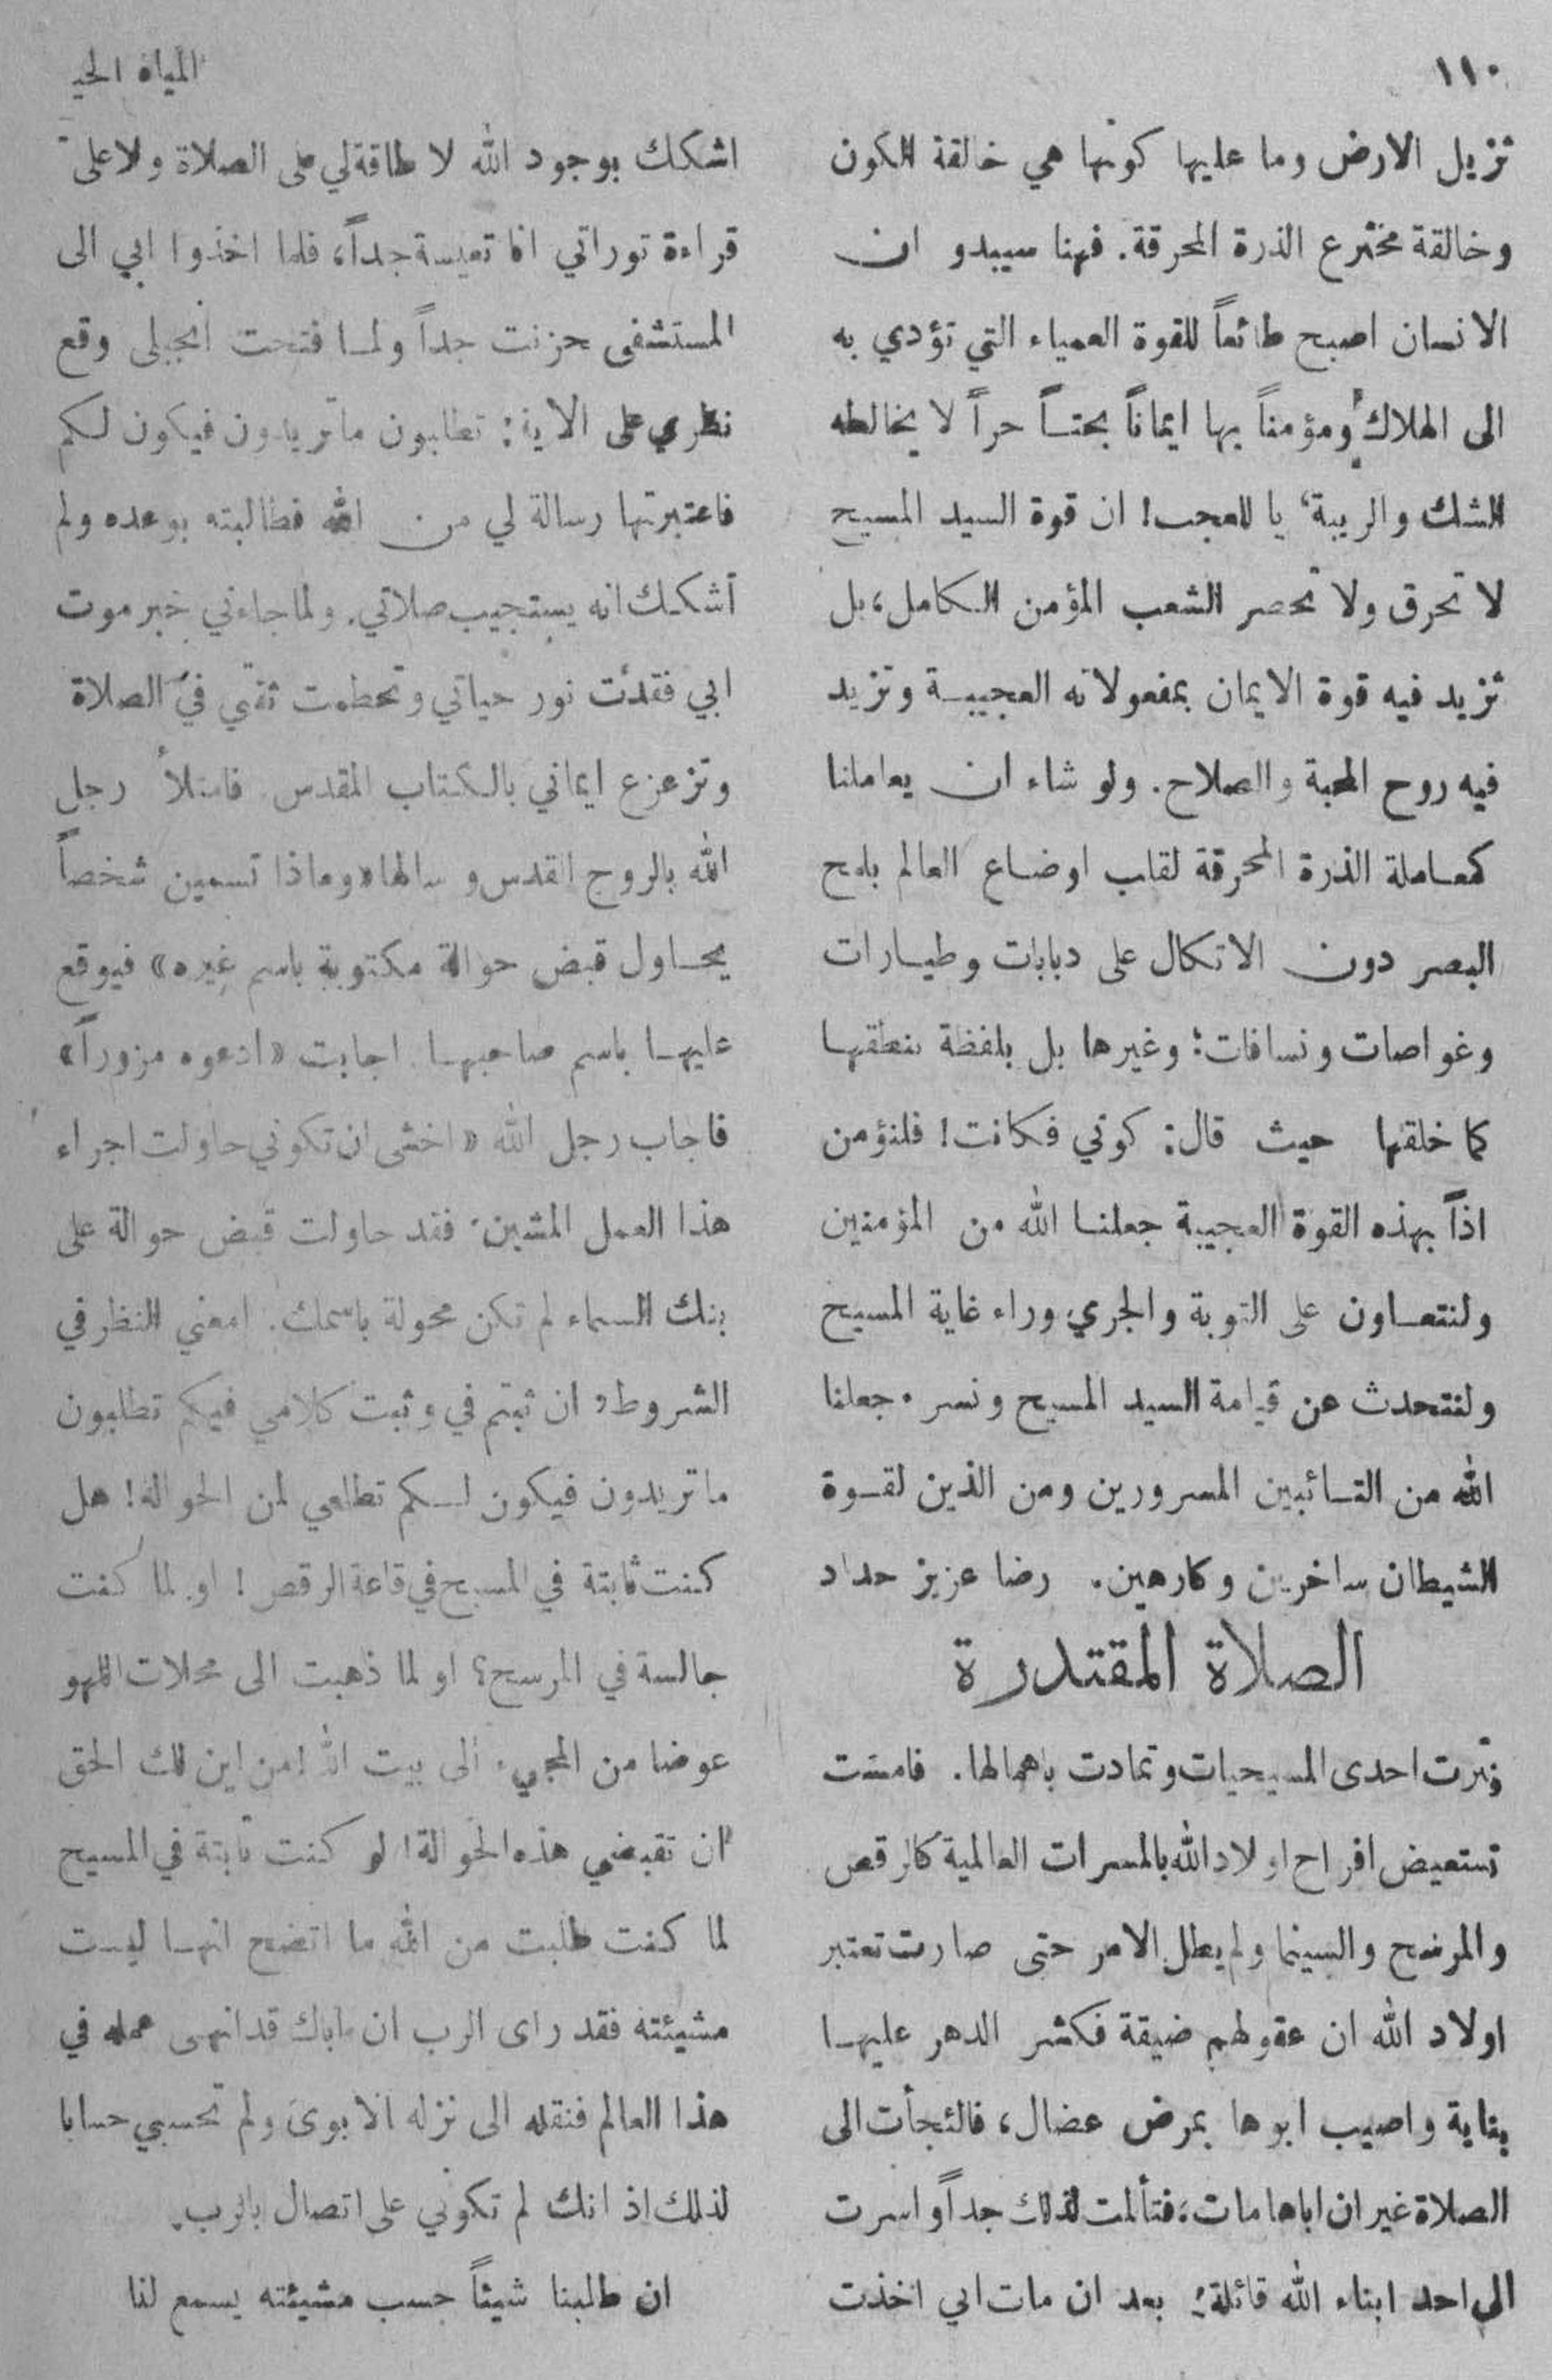 ١١٠
المياه الحية
تزيل الارض وما عليها كونها هي خالقة الكون
وخالقة مخترع الذرة المحرقة. فهنا سيبدو ان
الانسان اصبح طائعاً للقوة العمياء التي تؤدي به
الى الهلاك ومؤمناً بها ايماناً بحتـاً حراً لا يخالطه
الشك والريبة، يا للعجب! ان قوة السيد المسيح
لا تحرق ولا تحصر الشعب المؤمن الكامل، بل
تزيد فيه قوة الايمان بمفعولاته العجيبـة وتزيد
فيه روح المحبة والصلاح. ولو شاء ان يعاملنا
كمعـاملة الذرة المحرقة لقلب اوضـاع العالم بلمح
البصر دون الاتكال على دبابات وطيـارات
وغواصات ونسافات: وغيرها بل بلفظة ينطقهـا
كما خلقها حيث قال: كوني فكانت! فلنؤمن
اذاً بهذه القوة العجيبة جعلنـا الله من المؤمنين
ولنتعـاون على التوبة والجري وراء غاية المسيح
ولنتحدث عن قيامة السيد المسيح ونسر. جعلنا
الله من التـائبين المسرورين ومن الذين لقـوة
الشيطان ساخرين وكارهين. رضا عزيز حداد
الصلاة المقتدرة
فترت احدى المسيحيات وتمادت باهمالها. فامست
تستعيض افراح اولاد الله بالمسرات العالمية كالرقص
والمرسح والسينما ولم يطل الامر حتى صارت تعتبر
اولاد الله ان عقولهم ضيقة فكشر الدهر عليهـا
بنابه واصيب ابوها بمرض عضال، فالتجأت الى
الصلاة غير ان اباها مات، فتألمت لذلك جداً واسرت
الى احد ابناء الله قائلة: بعد ان مات ابي اخذت
اشكك بوجود الله لا طاقة لي على الصلاة ولا على
قراءة توراتي انا تعيسة جداً، فلما اخذوا ابي الى
المستشفى حزنت جداً ولمـا فتحت انجيلي وقع
نظري على الاية: تطلبون ما تريدون فيكون لكم
فاعتبرتها رسالة لي من الله فطالبته بوعده ولم
أشكك انه يستجيب صلاتي. ولما جاءني خبر موت
ابي فقدت نور حياتي وتحطمت ثقتي في الصلاة
وتزعزع ايماني بالكتاب المقدس. فامتلأ رجل
الله بالروح القدس وسالها «وماذا تسمين شخصاً
يحـاول قبض حوالة مكتوبة باسم غيره» فيوقع
عليهـا باسم صاحبهـا. اجابت «ادعوه مزوراً»
فاجاب رجل الله «اخشى ان تكوني حاولت اجراء
هذا العمل المشين. فقد حاولت قبض حوالة على
بنك السماء لم تكن محولة باسمك. امعني النظر في
الشروط، ان ثبتم في وثبت كلامي فيكم تطلبون
ما تريدون فيكون لـكم تطلعي لمن الحوالة! هل
كنت ثابتة في المسيح في قاعة الرقص! او لما كنت
جالسة في المرسح؟ او لما ذهبت الى محلات اللهو
عوضا من المجيء الى بيت الله! من اين لك الحق
ان تقبضي هذه الحوالة! لو كنت ثابتة في المسيح
لما كنت طلبت من الله ما اتضح انهـا ليست
مشيئته فقد راى الرب ان اباك قد انهى عمله في
هذا العالم فنقله الى نزله الابوي ولم تحسبي حسابا
لذلك اذ انك لم تكوني على اتصال بالرب.
ان طلبنا شيئاً حسب مشيئته يسمع لنا